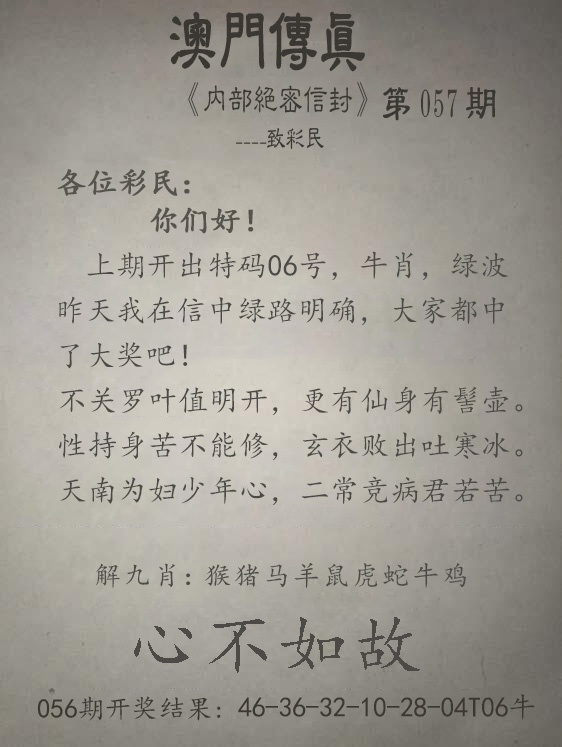 澳門傳眞
《内部絕密信封》第057期
----致彩民
各位彩民：
你们好！
上期开出特码06号，牛肖，绿波
昨天我在信中绿路明确，大家都中
了大奖吧！
不关罗叶值明开，更有仙身有髻壶。
性持身苦不能修，玄衣败出吐寒冰。
天南为妇少年心，二常竞病君若苦。
解九肖：猴猪马羊鼠虎蛇牛鸡
心不如故
056期开奖结果：46-36-32-10-28-04T06牛